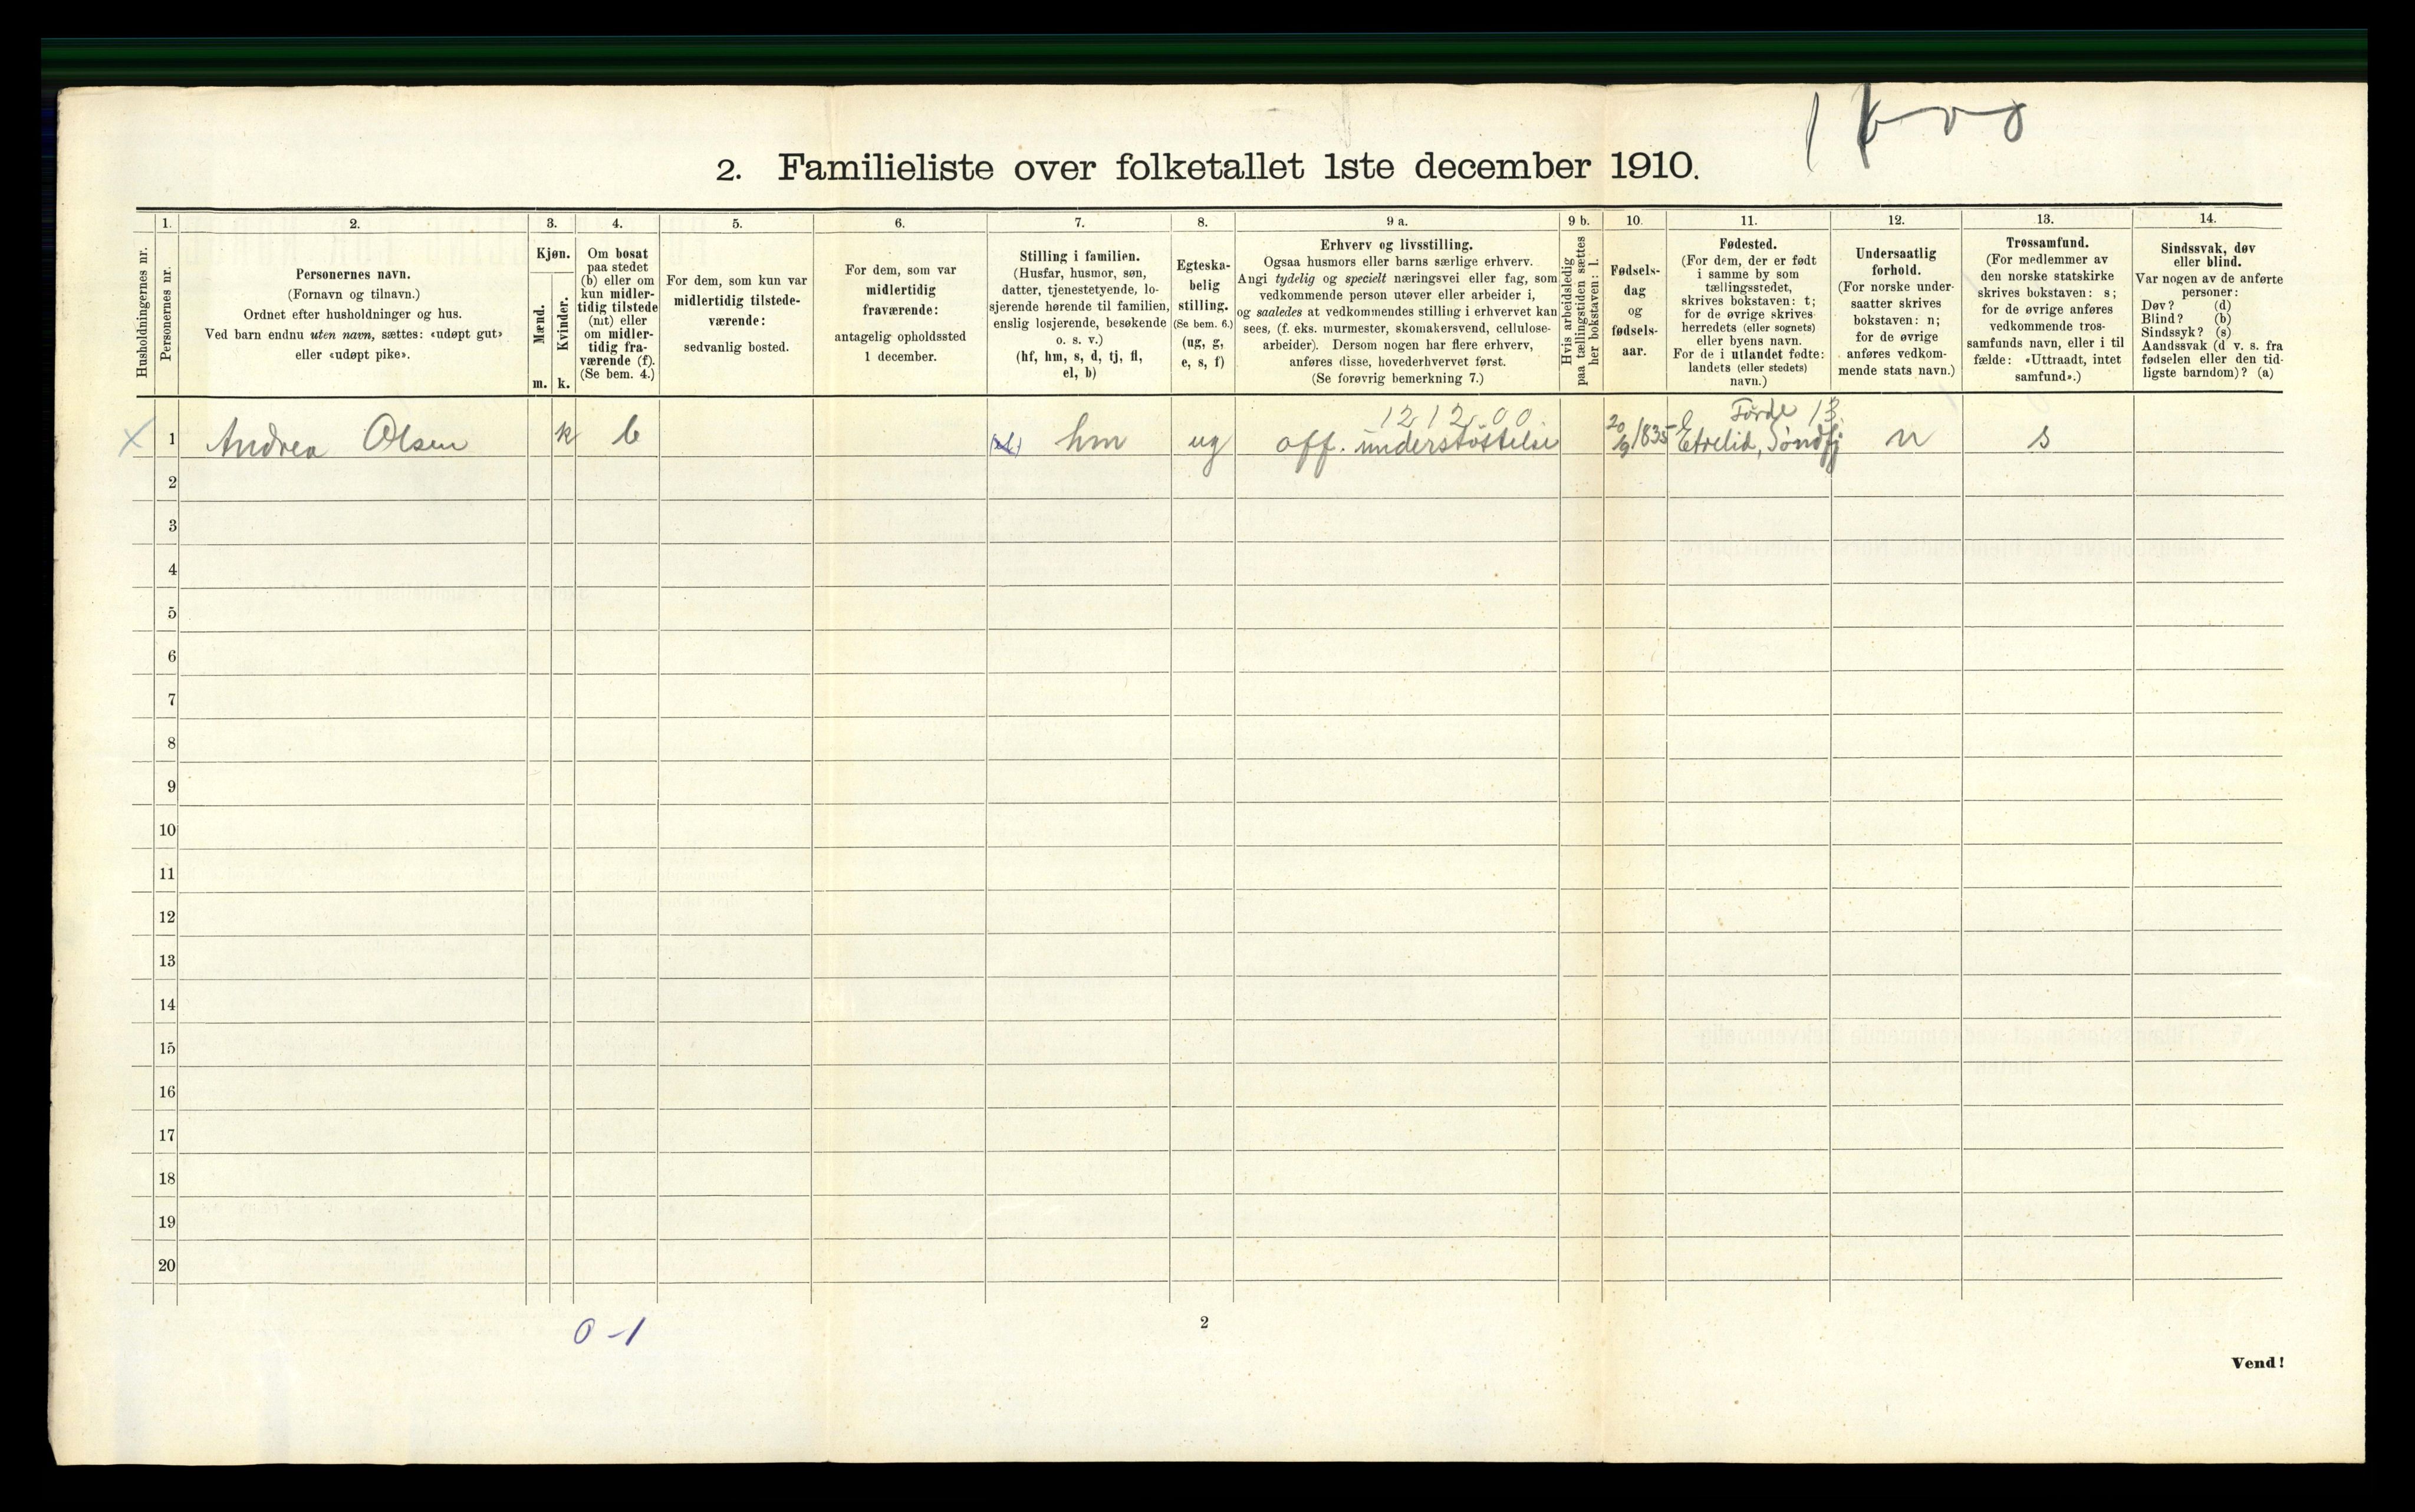 2. Familieliste over folketallet 1ste december 1910.
Husholdningernes nr.
1.
Personernes nr.
2.
Personernes navn.
(Fornavn og tilnavn.)
Ordnet efter husholdninger og hus.
Ved barn endnu uten navn, sættes: «udøpt gut»
eller «udøpt pike».
3.
Kjøn.
Mænd.
m.
Kvinder.
k.
4.
Om bosat
paa stedet
(b) eller om
kun midler-
tidig tilstede
(mt) eller
om midler-
tidig fra-
værende (f).
(Se bem. 4.)
5.
For dem, som kun var
midlertidig tilstede-
værende:
sedvanlig bosted.
6.
For dem, som var
midlertidig
fraværende:
antagelig opholdssted
1 december.
7.
Stilling i familien.
(Husfar, husmor, søn,
datter, tjenestetyende, lo-
sjerende hørende til familien,
enslig losjerende, besøkende
o. s. v.)
(hf, hm, s, d, tj, fl,
el, b)
8.
Egteska-
belig
stilling.
(Se bem. 6.)
(ug, g,
e, s, f)
9 a.
Erhverv og livsstilling.
Ogsaa husmors eller barns særlige erhverv.
Angi tydelig og specielt næringsvei eller fag, som
vedkommende person utøver eller arbeider i,
og saaledes at vedkommendes stilling i erhvervet kan
sees, (f. eks. murmester, skomakersvend, cellulose-
arbeider). Dersom nogen har flere erhverv,
anføres disse, hovederhvervet først.
(Se forøvrig bemerkning 7.)
9 b.
Hvis arbeidsledig
paa tællingstiden sættes
her bokstaven: l.
10.
Fødsels-
dag
og
fødsels-
aar.
11.
Fødested.
(For dem, der er født
i samme by som
tællingsstedet,
skrives bokstaven: t;
for de øvrige skrives
herredets (eller sognets)
eller byens navn.
For de i utlandet fødte:
landets (eller stedets)
navn.)
12.
Undersaatlig
forhold.
(For norske under-
saatter skrives
bokstaven: n;
for de øvrige
anføres vedkom-
mende stats navn.)
13.
Trossamfund.
(For medlemmer av
den norske statskirke
skrives bokstaven: s;
for de øvrige anføres
vedkommende tros-
samfunds navn, eller i til
fælde: «Uttraadt, intet
samfund».)
14.
Sindssvak, døv
eller blind.
Var nogen av de anførte
personer:
Døv? (d)
Blind? (b)
Sindssyk? (s)
Aandssvak (d v. s. fra
fødselen eller den tid-
ligste barndom)? (a)
12,12,00
Førde 13
x 1 Andrea Olsen k b hm ug off. understøttelse 20/9 1835 Søndfj n s
2
3
4
5
6
7
8
9
10
11
12
13
14
15
16
17
18
19
20
0-1
2
Vend!